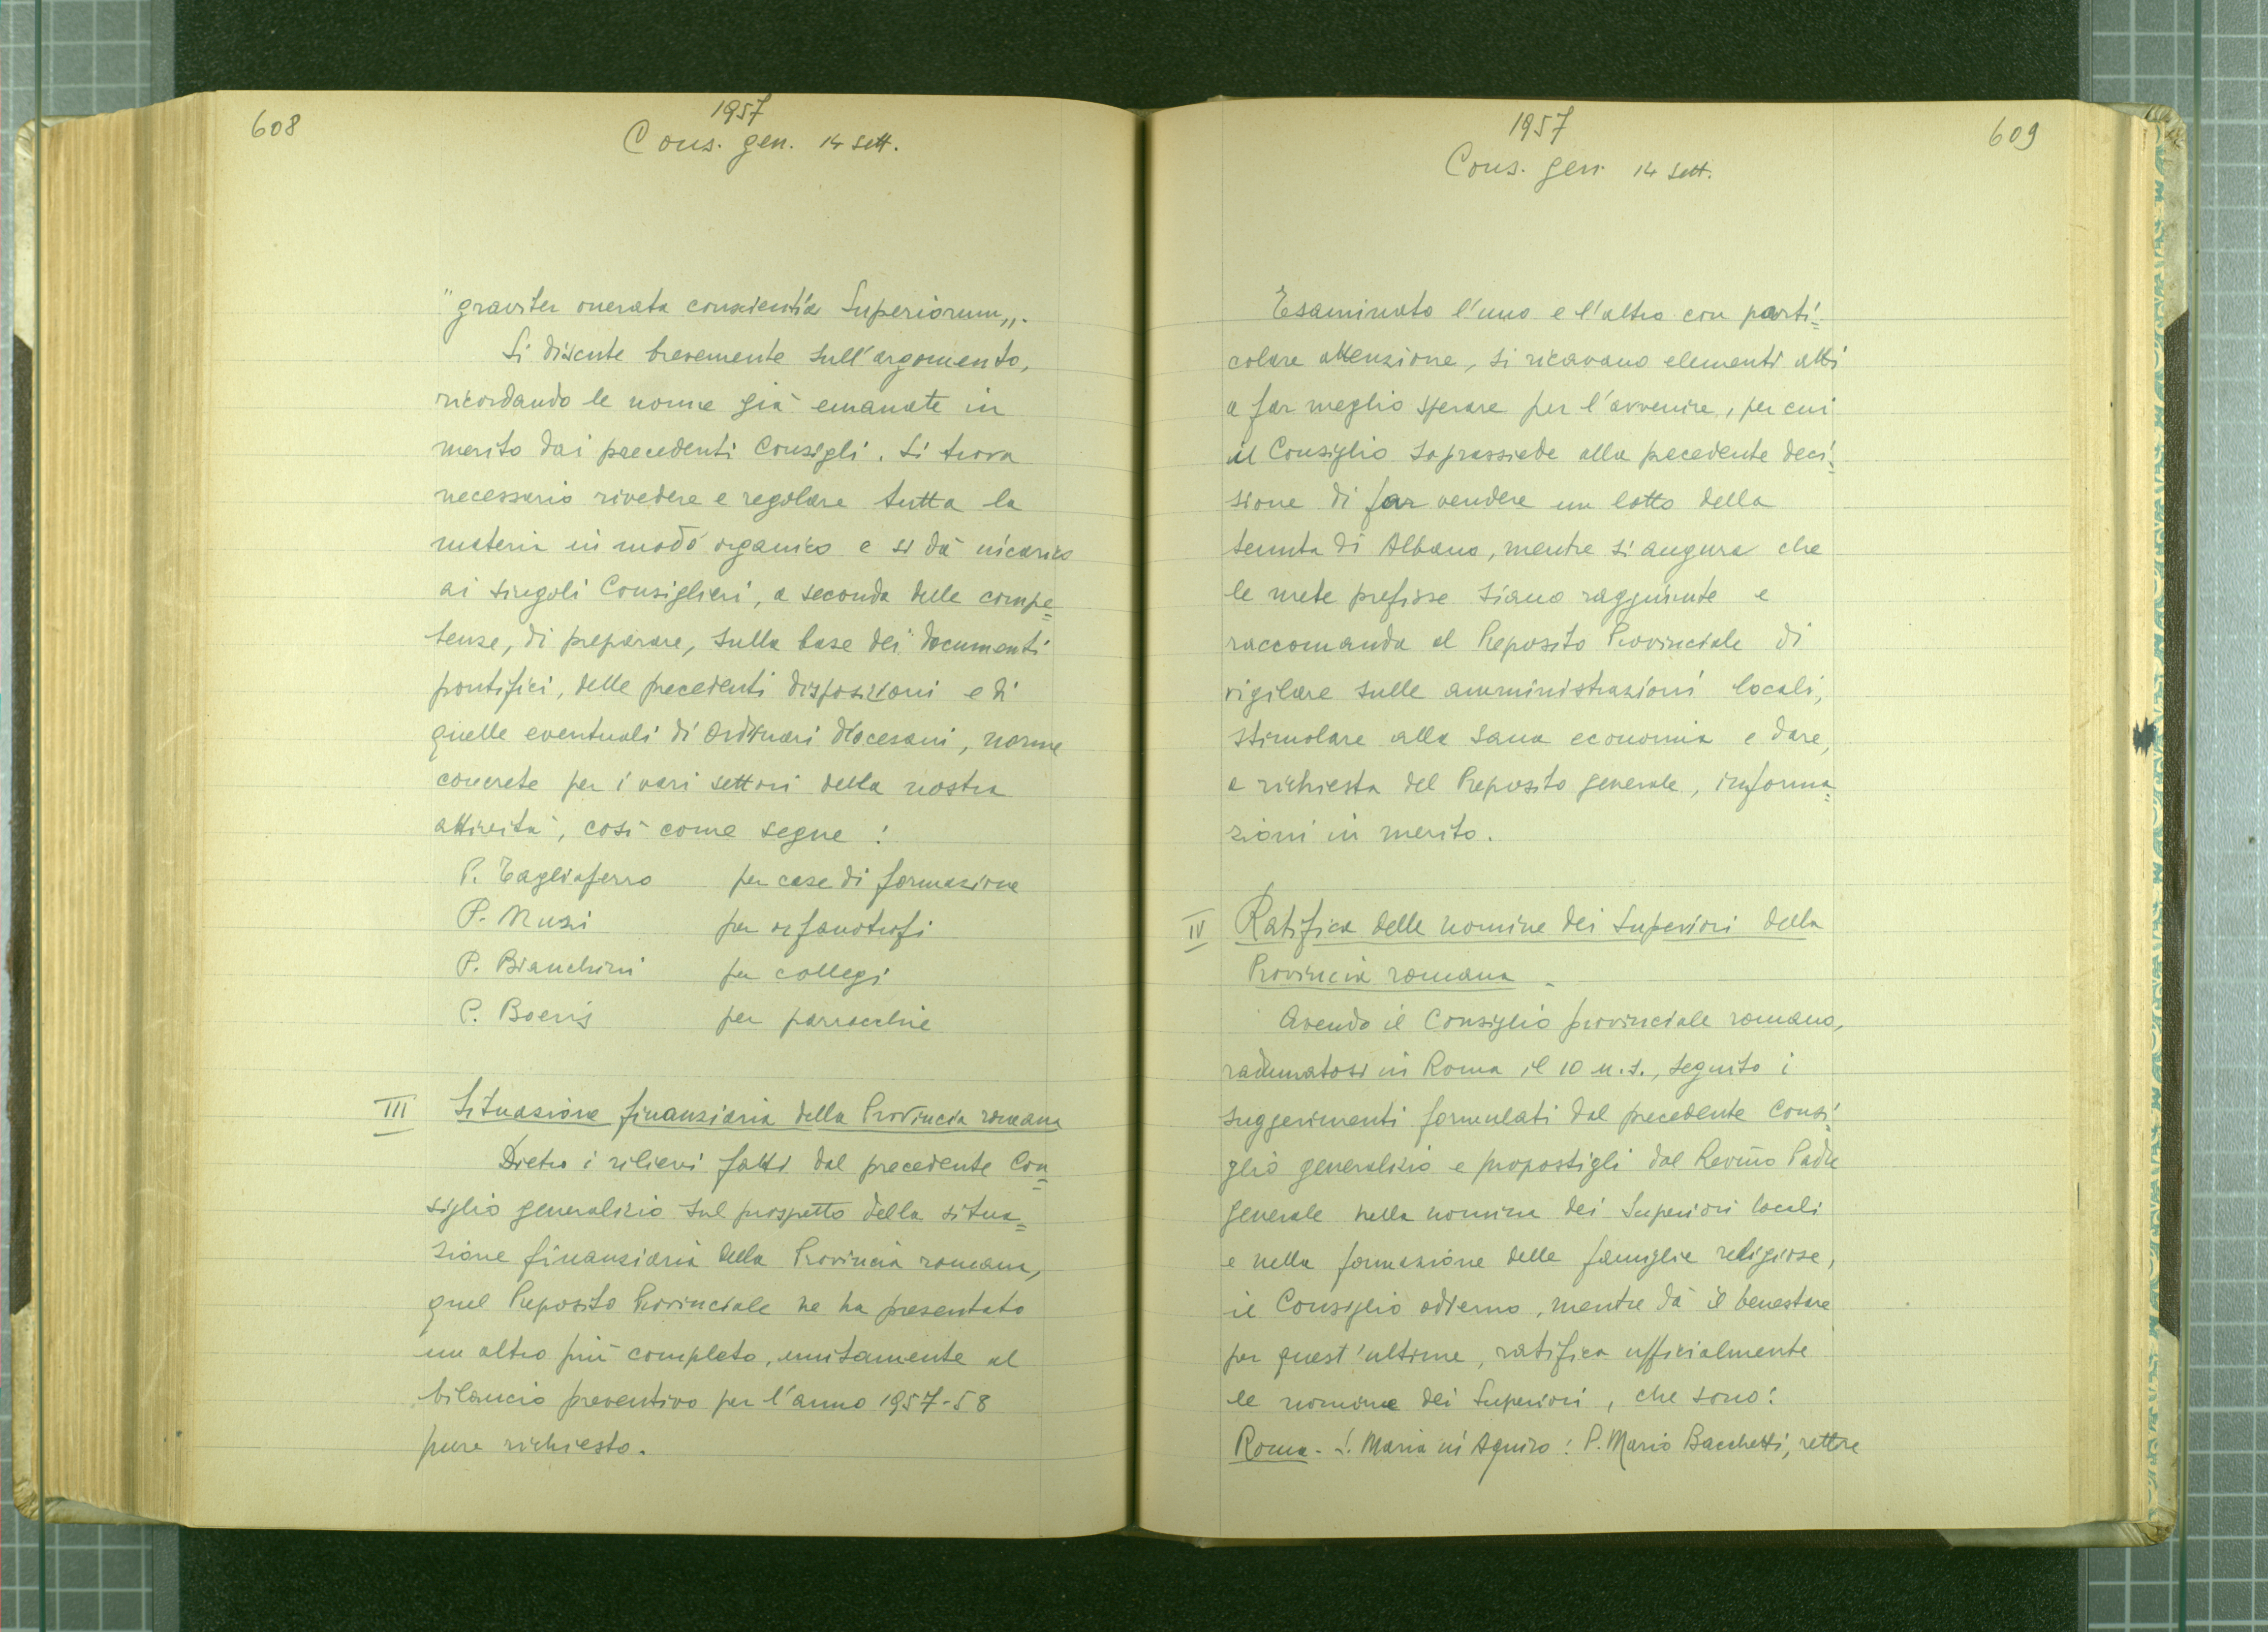 608
1957
Cons. gen. 14 sett.
"graviter onerata conscientia Superiorum„.
Si discute brevemente sull'argomento,
ricordando le norme già emanate in
merito dai precedenti Consigli. Si trova
necessario rivedere e regolare tutta la
materia in modo organico e si dà incarico
ai singoli Consiglieri, a seconda delle compe=
tenze, di preparare, sulla base dei documenti
pontifici, delle precedenti disposizioni e di
quelle eventuali di Ordinari diocesani, norme
concrete per i vari settori della nostra
attività, così come segue:
P. Tagliaferro per case di formazione
P. Muzi per orfanotrofi
P. Bianchini per collegi
P. Boeris per parrocchie
III Situazione finanziaria della Provincia romana
Dietro i rilievi fatti dal precedente Con=
siglio generalizio sul prospetto della situa=
zione finanziaria della Provincia romana,
quel Preposito Provinciale ne ha presentato
un altro più completo, unitamente al
bilancio preventivo per l'anno 1957-58
pure richiesto.
1957
609
Cons. gen. 14 sett.
Esaminato l'uno e l'altro con parti=
colare attenzione, si ricavano elementi atti
a far meglio sperare per l'avvenire, per cui
il Consiglio soprassiede alla precedente deci=
sione di far vendere un lotto della
tenuta di Albano, mentre si augura che
le mete prefisse siano raggiunte e
raccomanda al Preposito Provinciale di
vigilare sulle amministrazioni locali,
stimolare alla sana economia e dare,
a richiesta del Preposito generale, informa=
zioni in merito.
IV Ratifica delle nomine dei Superiori della
Provincia romana.
Avendo il Consiglio provinciale romano,
radunatosi in Roma il 10 u.s., seguito i
suggerimenti formulati dal precedente Consi=
glio generalizio e propostigli dal Rev̅mo Padre
Generale nella nomina dei Superiori locali
e nella formazione delle famiglie religiose,
il Consiglio odierno, mentre dà il benestare
per quest'ultime, ratifica ufficialmente
le nomine dei Superiori, che sono:
Roma - S. Maria in Aquiro: P. Mario Bacchetti, rettore